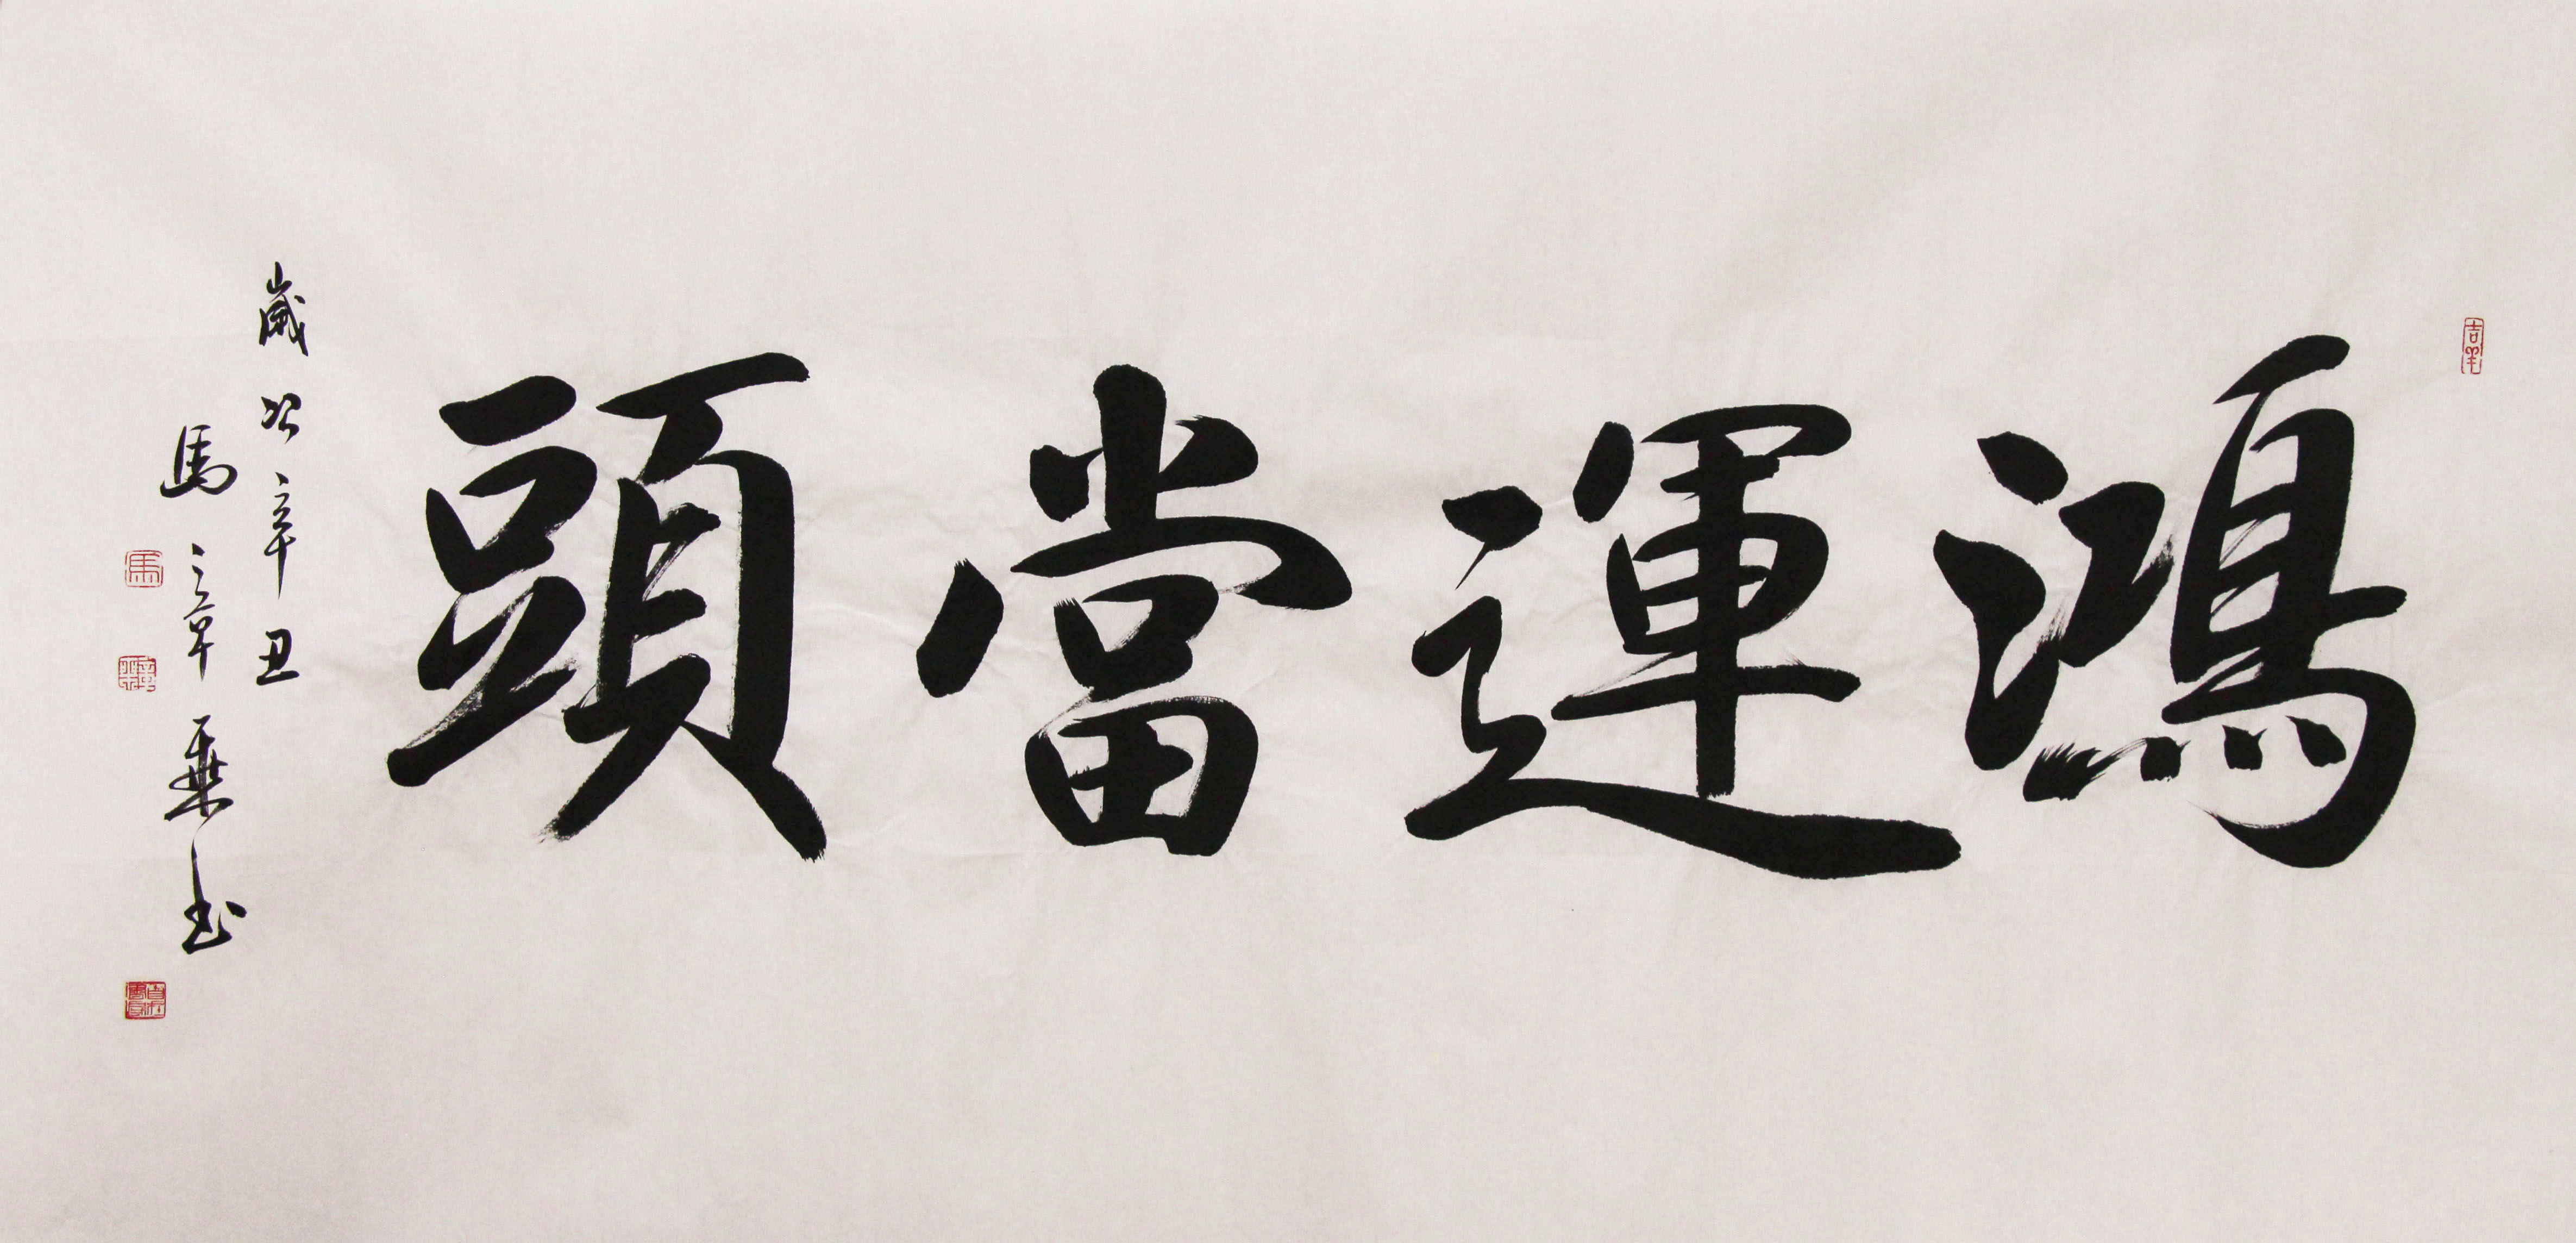 吉羊
鴻運當頭
歲次辛丑
馬章乘書
馬